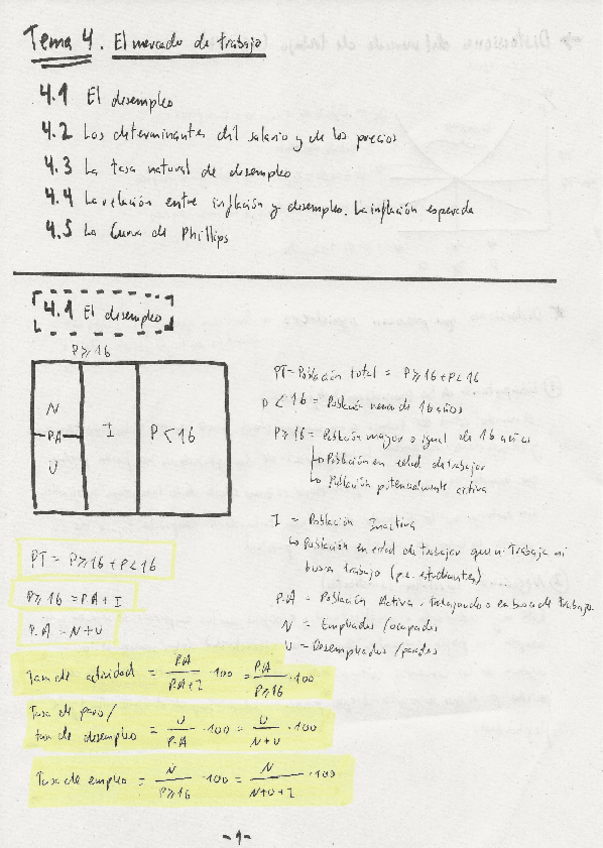 Tema 4. El mercado de trabajo
4.1 El desempleo
4.2 Los determinantes del salario y de los precios
4.3 La tasa natural de desempleo
4.4 La relación entre inflación y desempleo. La inflación esperada
4.5 La Curva de Phillips
4.1 El desempleo
P≥16
N
PA
U
I
P<16
PT = Población total = P≥16 + P<16
P<16 = Población menor de 16 años
P≥16 = Población mayor o igual de 16 años
↳ Población en edad de trabajar
↳ Población potencialmente activa
I = Población Inactiva
↳ Población en edad de trabajar que ni trabaja ni
busca trabajo (p.e. estudiantes)
P.A = Población Activa = trabajando o en busca de trabajo
N = Empleados / ocupados
U = Desempleados / parados
PT = P≥16 + P<16
P≥16 = P.A + I
P.A = N+U
Tasa de actividad = P.A / P.A+I · 100 = P.A / P≥16 · 100
Tasa de paro /
tasa de desempleo = U / P.A · 100 = U / N+U · 100
Tasa de empleo = N / P≥16 · 100 = N / N+U+I · 100
-1-